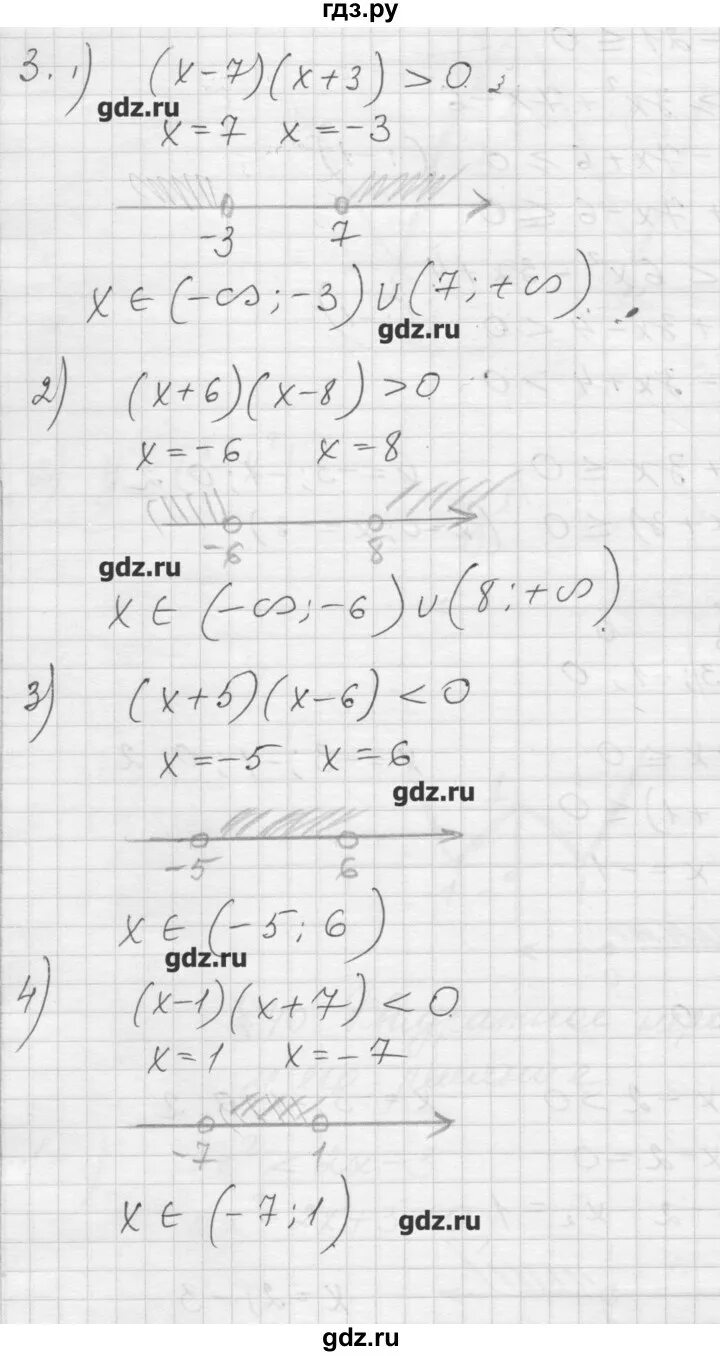 гдз.ру
3. 1) (x-7)(x+3) > 0
gdz.ru
x = 7 x = -3
-3 7
x ∈ (-∞; -3) ∪ (7; +∞)
gdz.ru
2) (x+6)(x-8) > 0
x = -6 x = 8
-6 8
gdz.ru
x ∈ (-∞; -6) ∪ (8; +∞)
3) (x+5)(x-6) < 0
x = -5 x = 6
gdz.ru
-5 6
x ∈ (-5; 6)
gdz.ru
4) (x-1)(x+7) < 0
x = 1 x = -7
-7 1
x ∈ (-7; 1)
gdz.ru
gdz.ru